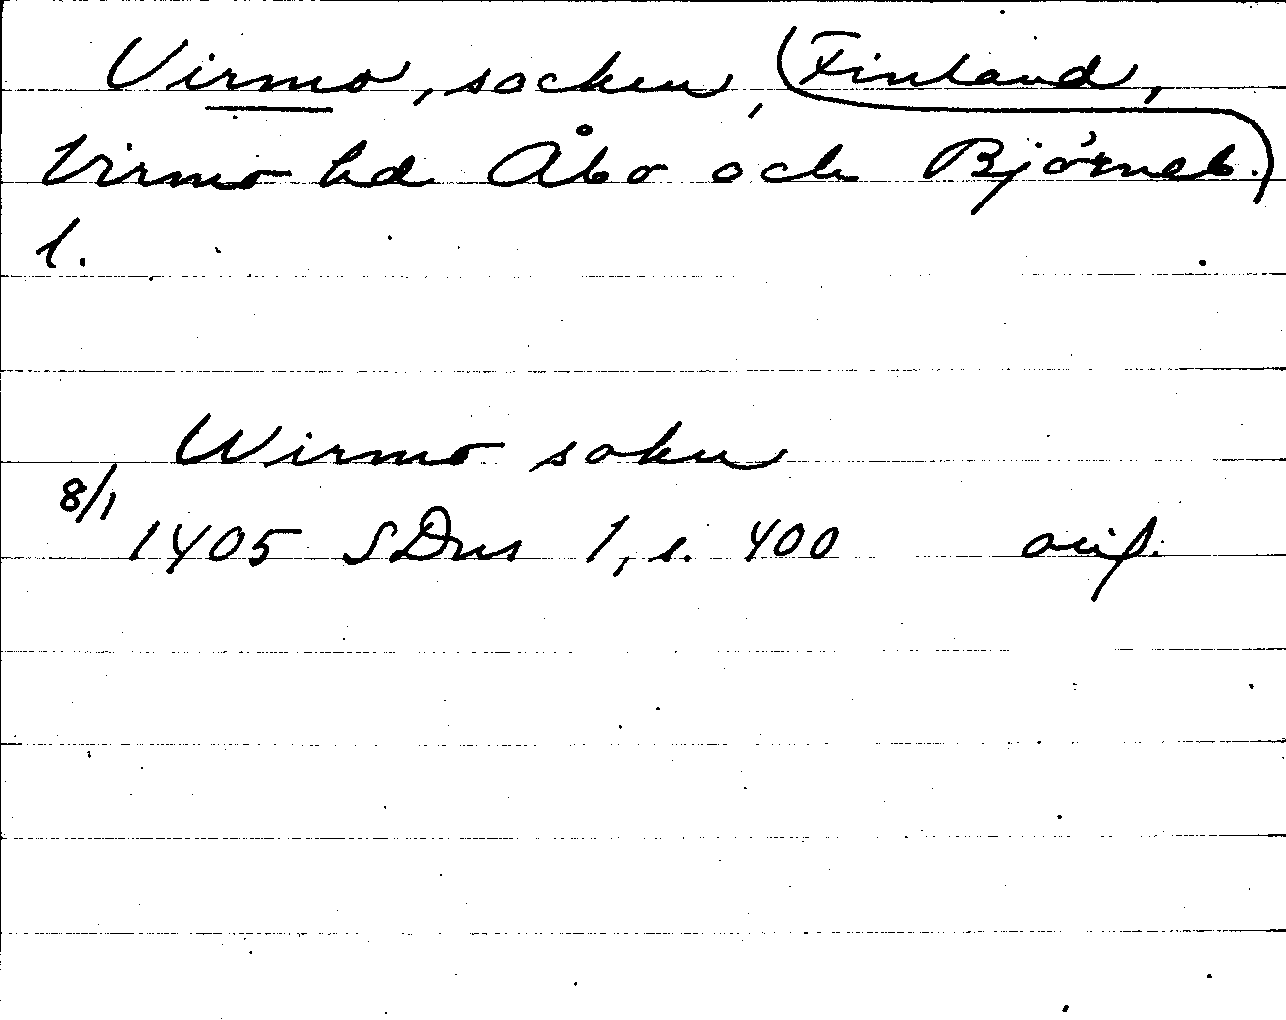 Virmo, socken, (Finland,
Virmo hd Åbo och Björneb.)
l.
Wirmo sokn
8/1
1405 SDns 1, s. 400 avs.